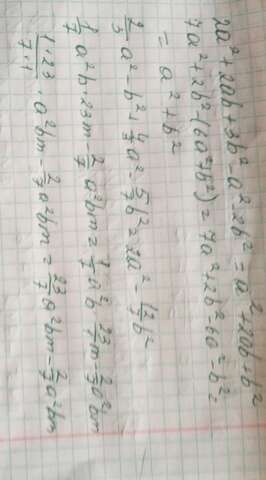 2a²+2ab+3b²-a²-2b² = a²+2ab+b²
7a²+2b²-(6a²+b²) = 7a²+2b²-6a²-b²=
= a²+b²
2/3 a²-b²+4/3 a²-5/7 b² = 2a²-12/7 b²
1/7 a²b·23m-2/7 a²bm = 1/7 a²b·23/1 m-2/7 a²bm
1·23/7·1 · a²bm-2/7 a²bm = 23/7 a²bm-2/7 a²bm